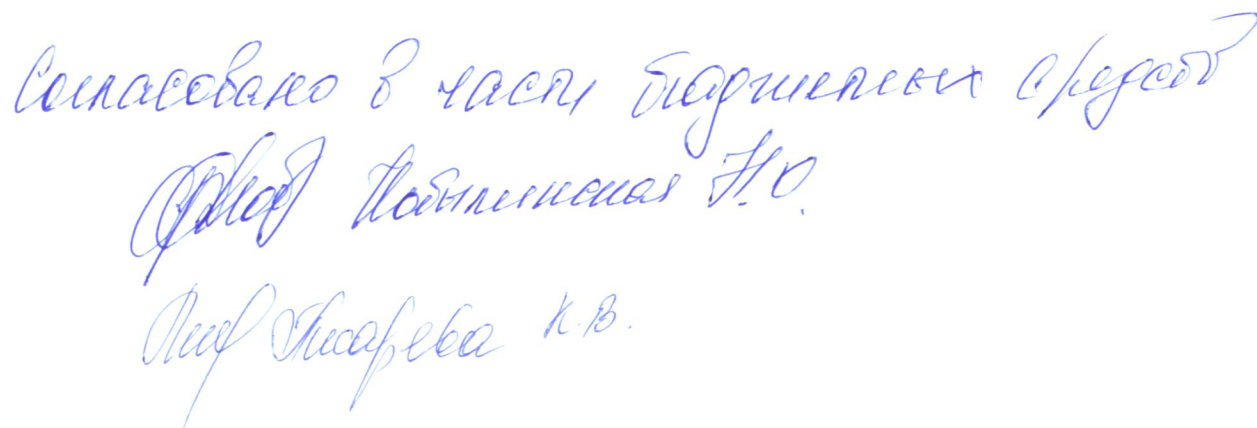 Согласовано в части бюджетных средств
Кобылинская Н.О.
Писарева К.В.